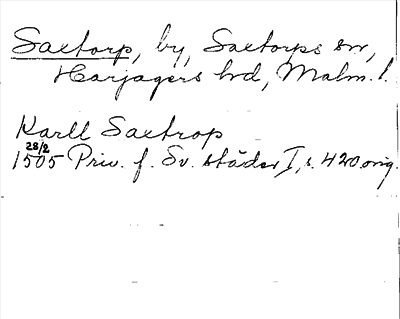 Saxtorp, by, Saxtorps sn,
Harjagers hd, Malm. l.
Karll Saxtrop
28/2
1505 Priv. f. Sv. städer I, s. 420 orig.